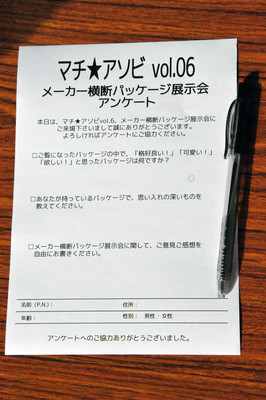 マチ★アソビ vol.06
メーカー横断パッケージ展示会
アンケート
本日は、マチ★アソビvol.6、メーカー横断パッケージ展示会に
ご来場下さいまして誠にありがとうございます。
よろしければアンケートにご協力ください。
□ご覧になったパッケージの中で、「格好良い！」「可愛い！」
「欲しい！」と思ったパッケージは何ですか？
□あなたが持っているパッケージで、思い入れの深いものを
教えてください。
□メーカー横断パッケージ展示会に関して、ご意見ご感想を
自由にお書きください。
名前（P.N.）： 住所：
年齢： 性別： 男性・女性
アンケートへのご協力ありがとうございました。